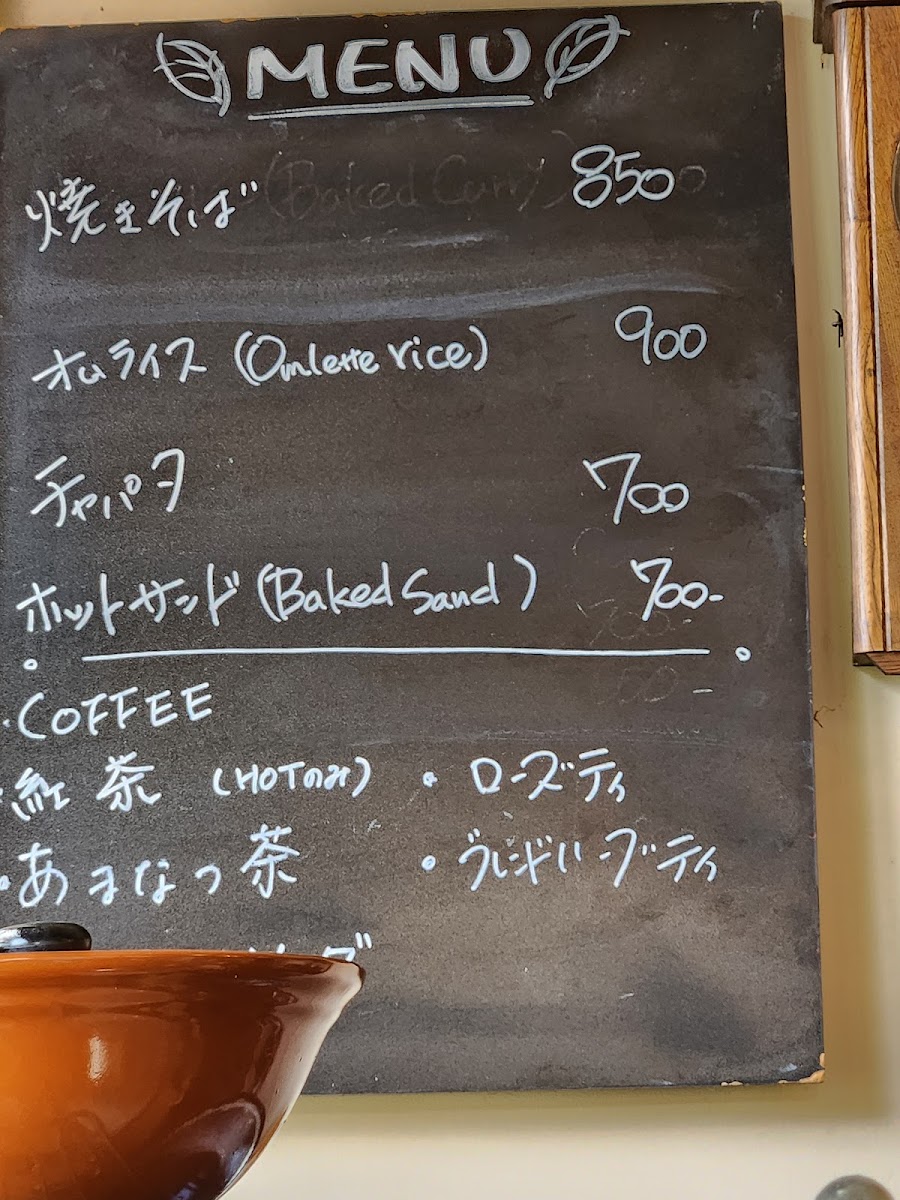 MENU
焼きそば 850
オムライス (Omlette rice) 900
チャパタ 700
ホットサンド (Baked Sand) 700-
・COFFEE
・紅茶 (HOTのみ) ・ローズティ
・あまなつ茶 ・ブレンドハーブティ